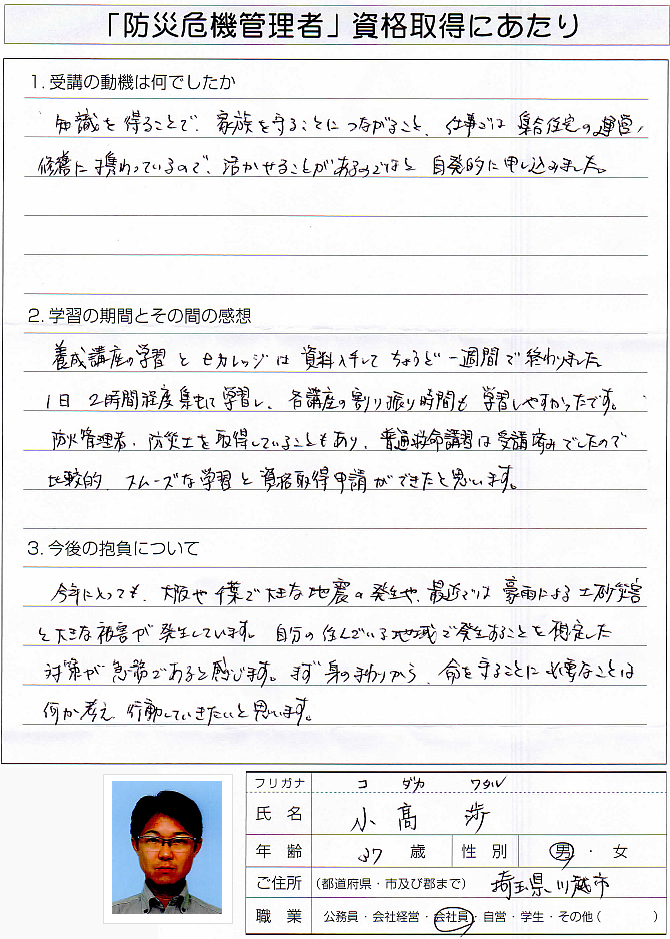 「防災危機管理者」資格取得にあたり
1. 受講の動機は何でしたか
知識を得ることで、家族を守ることにつながること、仕事では集合住宅の運営、
修繕に携わっているので、活かせることがあるのではと自発的に申し込みました。
2. 学習の期間とその間の感想
養成講座の学習とeカレッジは資料入手してちょうど一週間で終わりました
1日2時間程度集中して学習し、各講座の割り振り時間も学習しやすかったです。
防火管理者、防災士を取得していることもあり、普通救命講習は受講済みでしたので
比較的、スムーズな学習と資格取得申請ができたと思います。
3. 今後の抱負について
今年に入っても、大阪や千葉で大きな地震の発生や、最近では豪雨による土砂災害
と大きな被害が発生しています。自分の住んでいる地域で発生することを想定した
対策が急務であると感じます。まず身のまわりから、命を守ることに必要なことは
何か考え、行動していきたいと思います。
フリガナ コダカ ワタル
氏名 小高 歩
年齢 37歳 性別 男・女
ご住所 (都道府県・市及び郡まで) 埼玉県川越市
職業 公務員・会社経営・会社員・自営・学生・その他( )